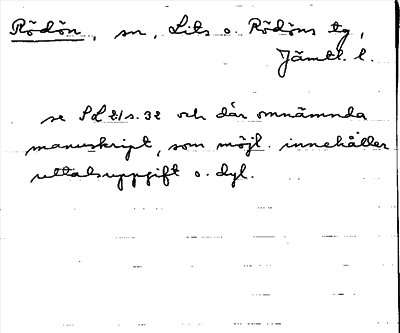 Rödön, sn, Lits o. Rödöns tg,
Jämtl. l.
se SL 21 s. 32 och där omnämnda
manuskript, som möjl. innehåller
uttalsuppgift o. dyl.